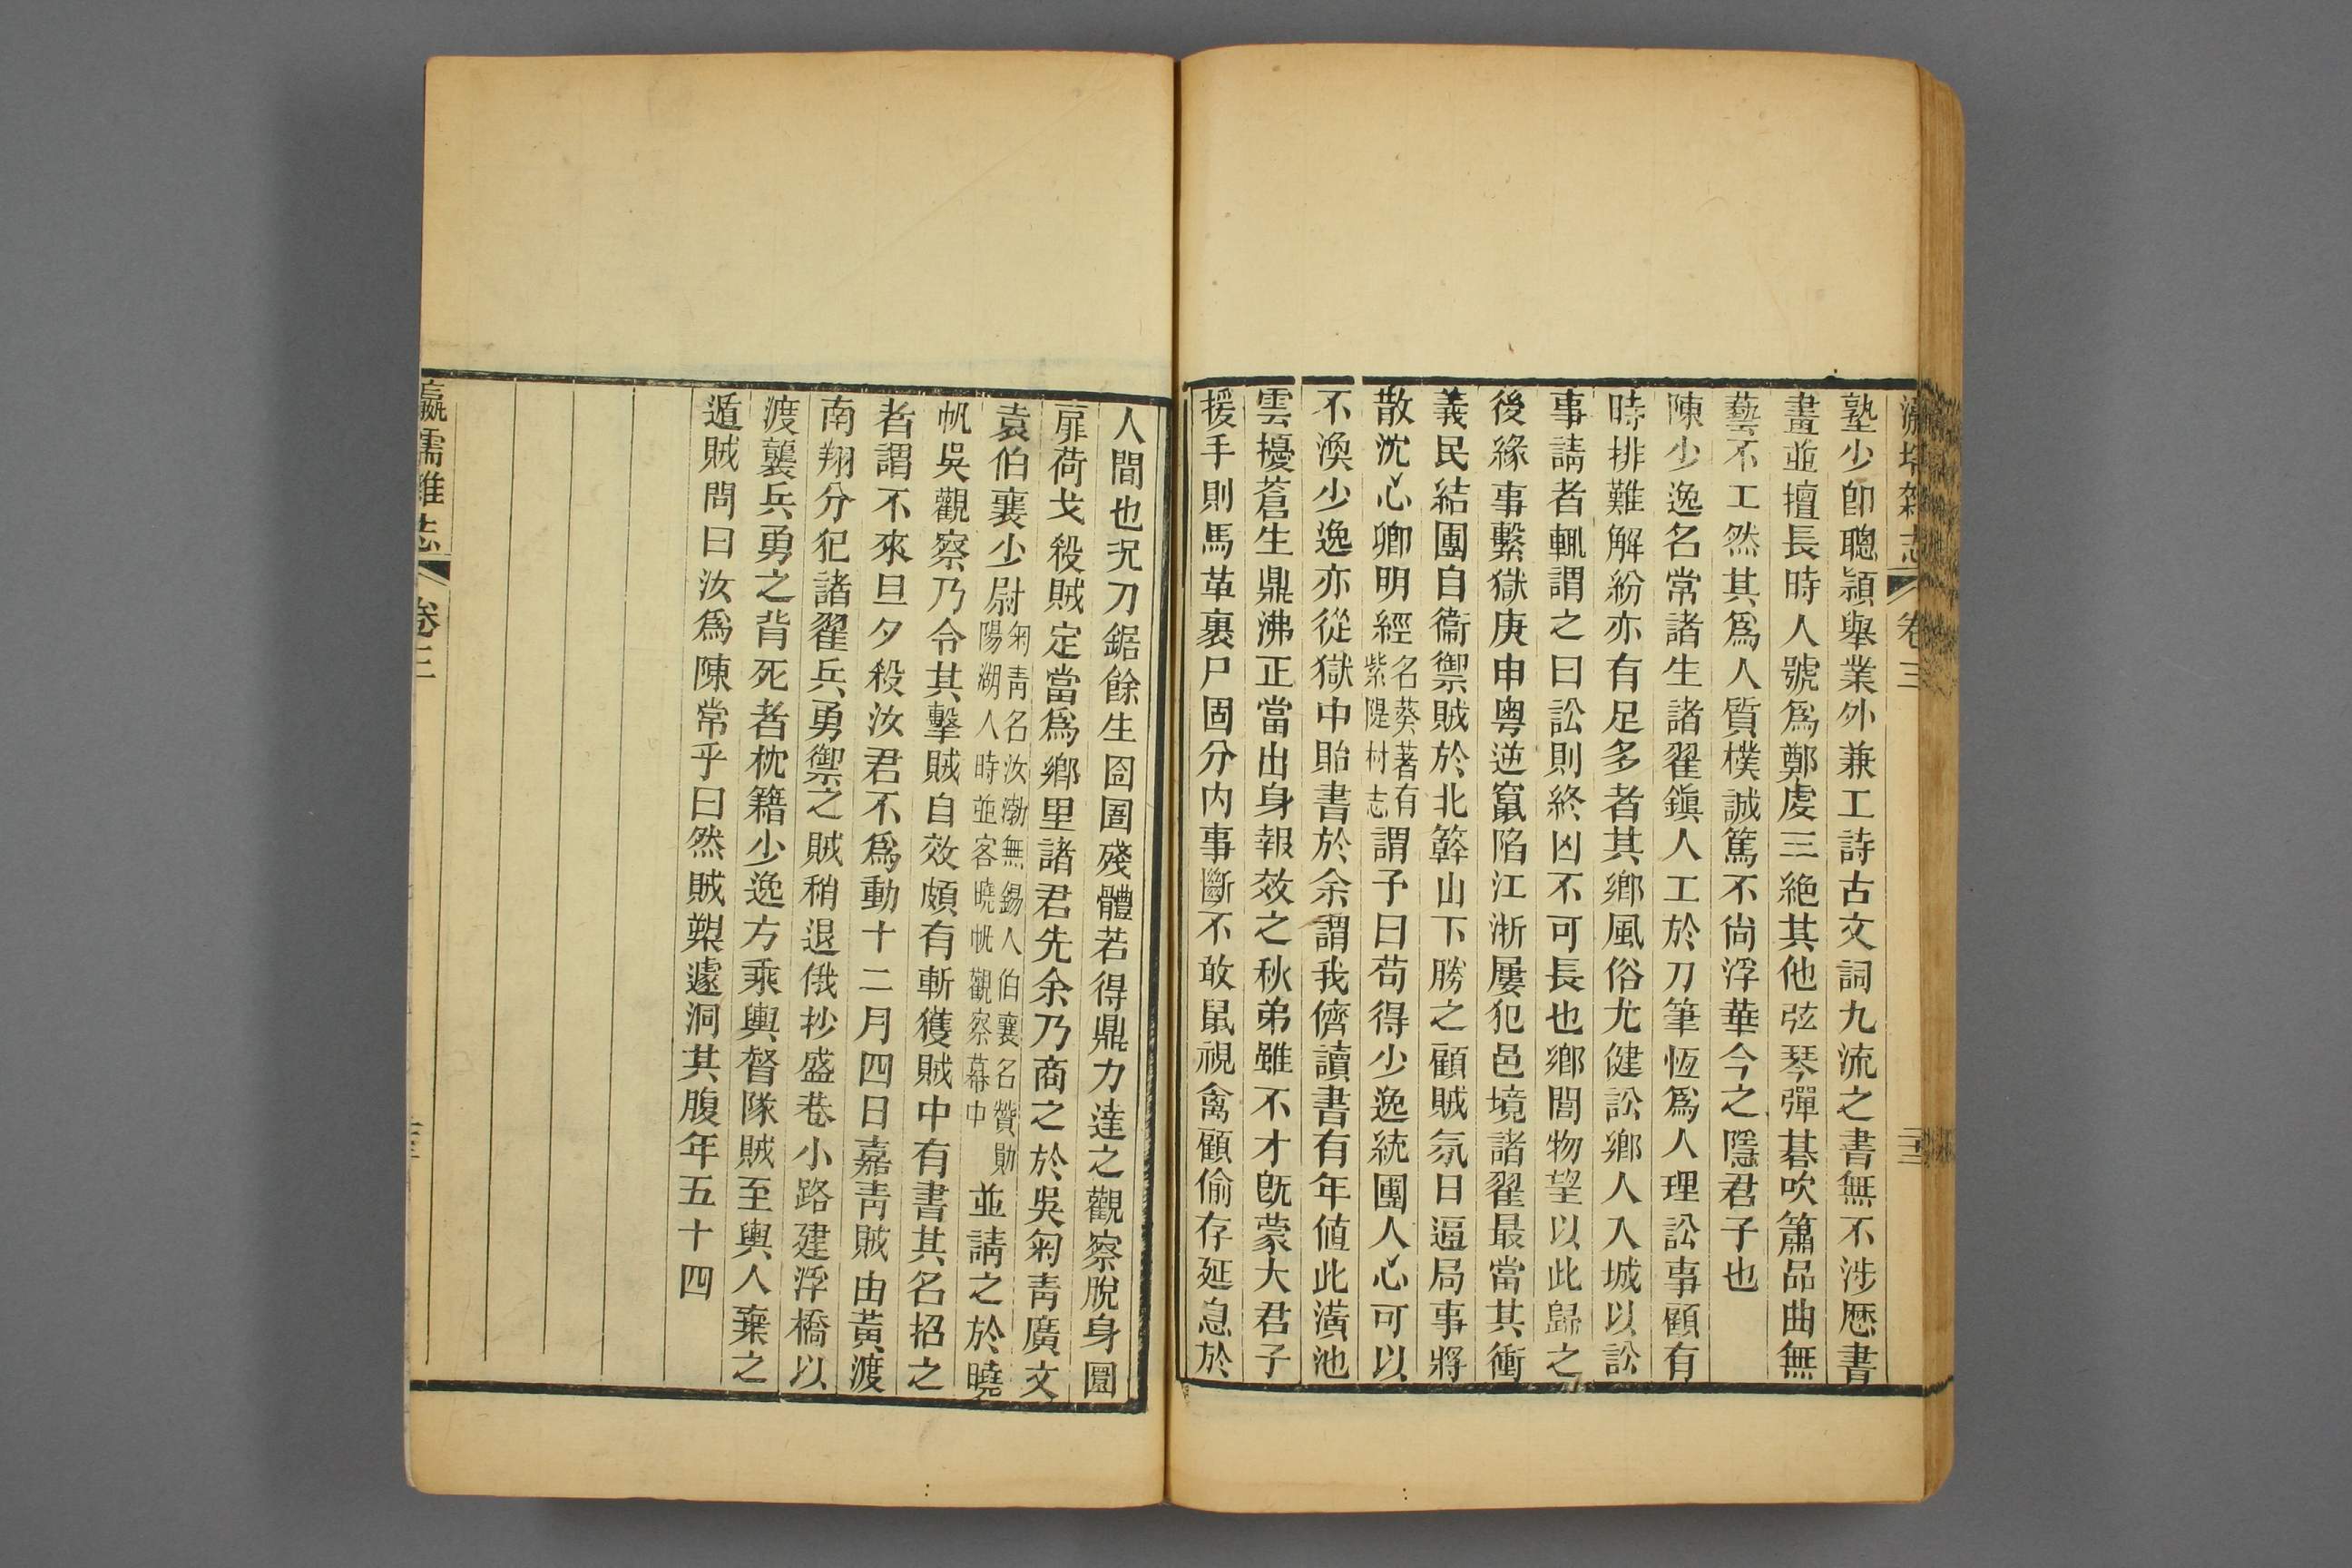 瀛壖雜志 卷三
塾少卽聰頴舉業外兼工詩古文詞九流之書無不涉歷書
畫並擅長時人號爲鄭虔三絕其他弦琴彈碁吹簫品曲無
藝不工然其爲人質樸誠篤不尙浮華今之隱君子也
陳少逸名常諸生諸翟鎭人工於刀筆恆爲人理訟事顧有
時排難解紛亦有足多者其鄕風俗尤健訟鄕人入城以訟
事請者輒謂之曰訟則終凶不可長也鄕閭物望以此歸之
後緣事繫獄庚申粤逆竄陷江浙屢犯邑境諸翟最當其衝
義民結團自衞禦賊於北簳山下勝之顧賊氛日逼局事將
散沈心卿明經名葵著有紫隄村志謂予曰苟得少逸統團人心可以
不渙少逸亦從獄中貽書於余謂我儕讀書有年値此潢池
雲擾蒼生鼎沸正當出身報效之秋弟雖不才旣蒙大君子
援手則馬革裹尸固分內事斷不敢鼠視禽顧偷存延息於
人間也況刀鋸餘生囹圄殘體若得鼎力達之觀察脫身圜
扉荷戈殺賊定當爲鄕里諸君先余乃商之於吳菊靑廣文
袁伯襄少尉菊靑名汝渤無錫人伯襄名贊勛陽湖人時並客曉帆觀察幕中並請之於曉
帆吳觀察乃令其擊賊自效頗有斬獲賊中有書其名招之
者謂不來旦夕殺汝君不爲動十二月四日嘉靑賊由黃渡
南翔分犯諸翟兵勇禦之賊稍退俄抄盛巷小路建浮橋以
渡襲兵勇之背死者枕籍少逸方乘輿督隊賊至輿人棄之
遁賊問曰汝爲陳常乎曰然賊槊遽洞其腹年五十四
瀛壖雜志 卷三